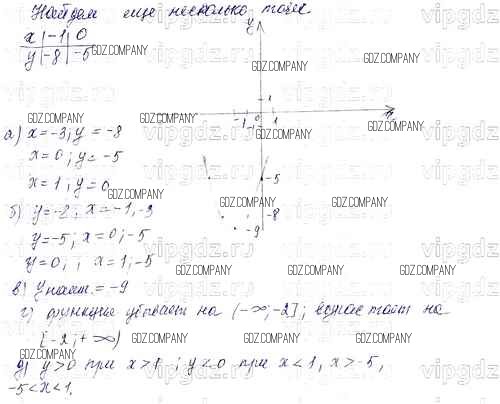 Найдем еще несколько точек.
x | -1 | 0
y | -8 | -5
y
1
-1 0 1
-1
-5
-8
-9
а) x = -3; y = -8
x = 0; y = -5
x = 1; y = 0
б) y = -8; x = -1, -3
y = -5; x = 0; -5
y = 0, ; x = 1, -5
в) y наим. = -9
г) функция убывает на (-∞; -2]; возрастает на
[-2; +∞)
д) y > 0 при x > 1; y < 0 при x < 1, x > -5,
-5 < x < 1.
GDZ.COMPANY
vipgdz.ru